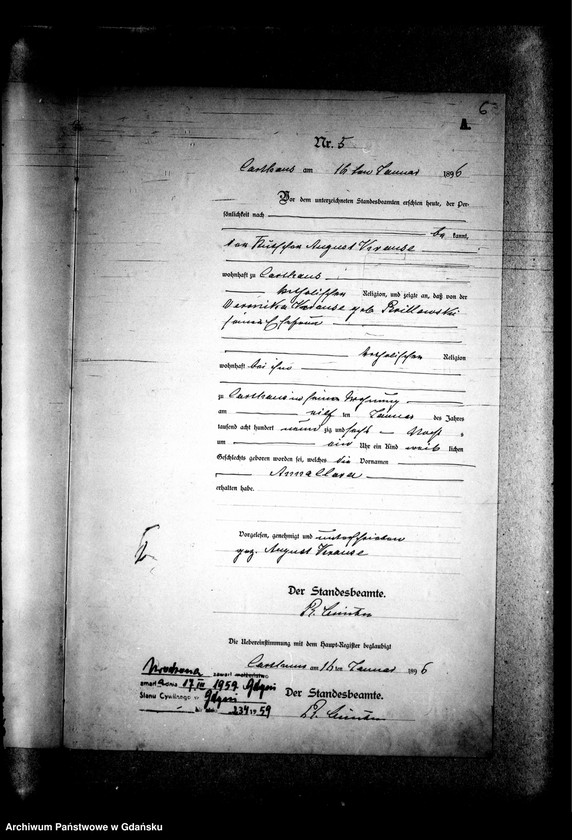 6
A.
Nr. 5
Carthaus am 16 ten Januar 1896
Vor dem unterzeichneten Standesbeamten erschien heute, der Per-
sönlichkeit nach
be kannt,
der Kutscher August Krause
wohnhaft zu Carthaus
katholischer Religion, und zeigte an, daß von der
Veronika Krause geb.
seiner Ehefrau
katholischer Religion
wohnhaft bei ihm
zu Carthaus in seiner Wohnung
am ten Januar des Jahres
tausend acht hundert neun zig und sechs Nachts
um ein Uhr ein Kind weib lichen
Geschlechts geboren worden sei, welches die Vornamen
Anna Clara
erhalten habe.
Vorgelesen, genehmigt und unterschrieben
gez. August Krause
Der Standesbeamte.
Die Uebereinstimmung mit dem Haupt-Register beglaubigt
Carthaus am 16 ten Januar 1896
Der Standesbeamte.
zawarł małżeństwo
zmarł dnia 17 III 1959 Gdynia
Stanu Cywilnego w Gdyni
234 1959
Archiwum Państwowe w Gdańsku